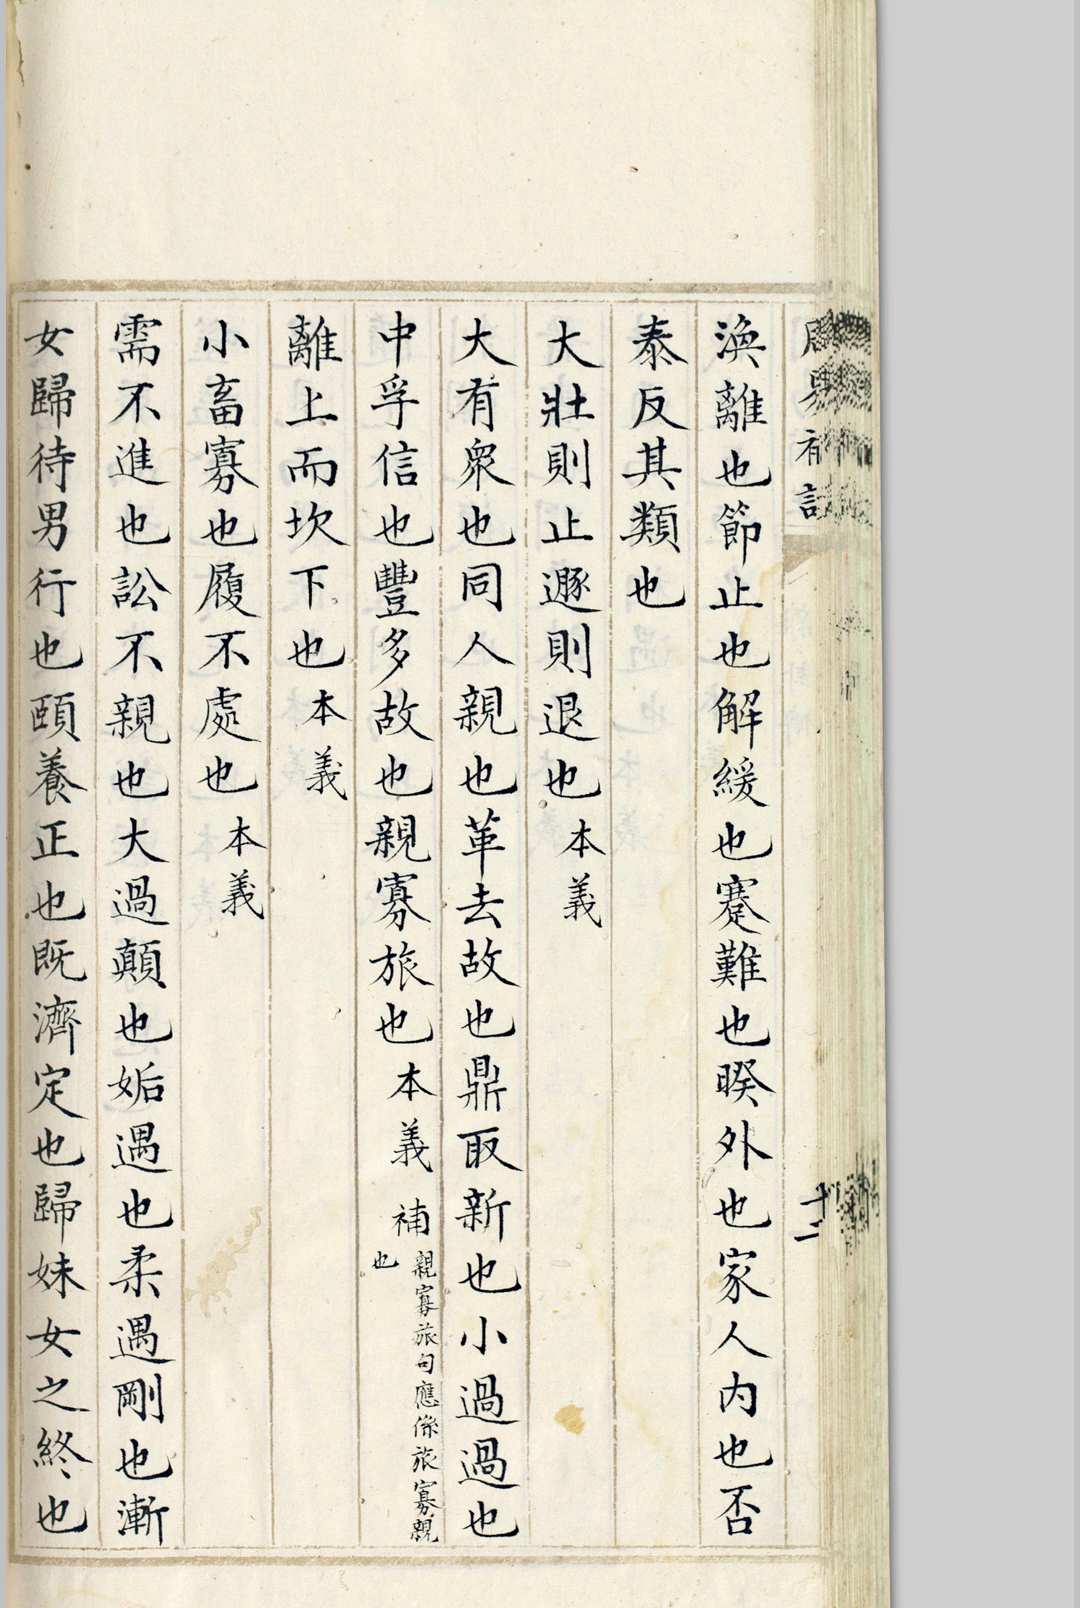 周易補註
渙離也節止也解緩也蹇難也睽外也家人內也否
泰反其類也
大壯則止遯則退也本義
大有衆也同人親也革去故也鼎取新也小過過也
中孚信也豐多故也親寡旅也本義 補親寡旅句應係旅寡親
也
離上而坎下也本義
小畜寡也履不處也本義
需不進也訟不親也大過顛也姤遇也柔遇剛也漸
女歸待男行也頤養正也既濟定也歸妹女之終也
十二